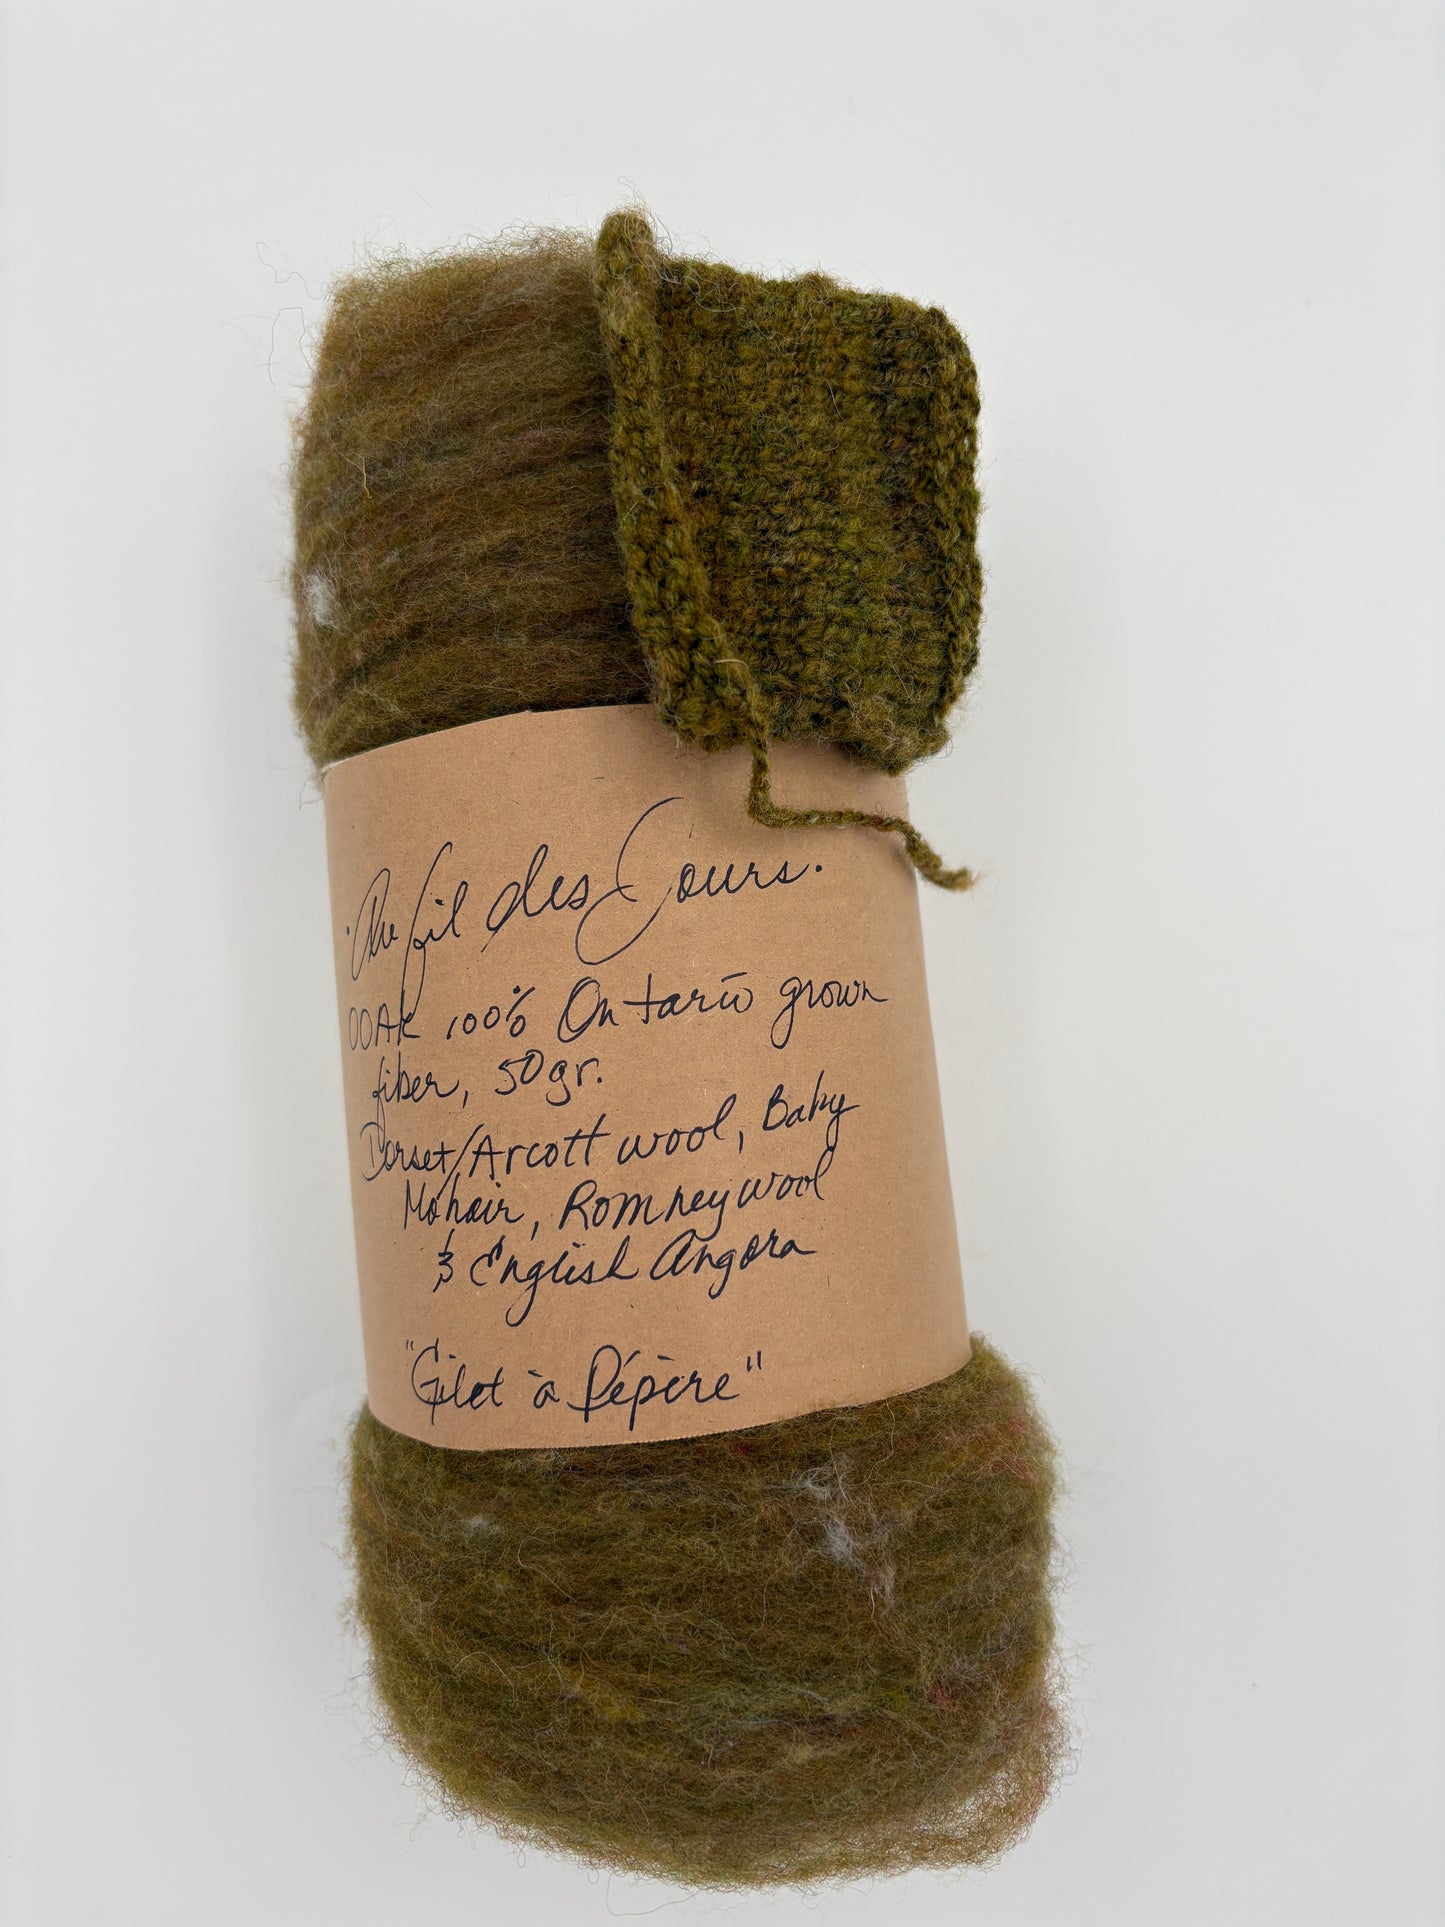 "Au fil des Jours."
OOAK 100% Ontario grown
fiber, 50gr.
Dorset/Arcott wool, Baby
Mohair, Romney wool
& English Angora
"Gilet à Pépère"